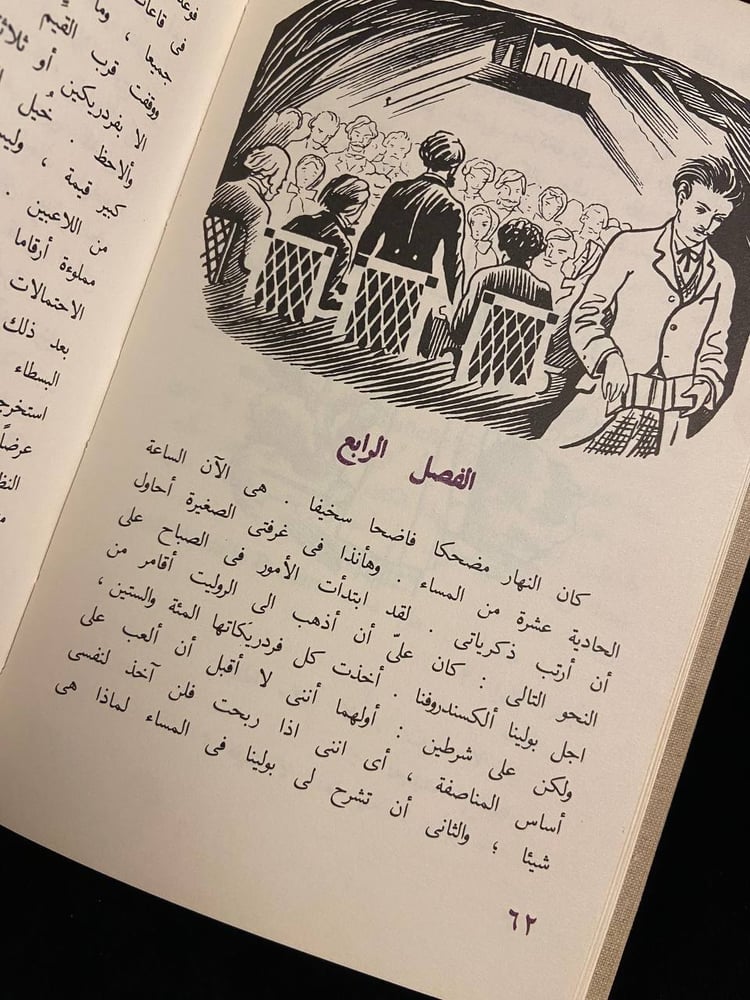 الفصل الرابع
كان النهار مضحكا فاضحا سخيفا . هى الآن الساعة
الحادية عشرة من المساء . وهأنذا فى غرفتى الصغيرة أحاول
أن أرتب ذكرياتى . لقد ابتدأت الأمور فى الصباح على
النحو التالى : كان علىّ أن أذهب الى الروليت أقامر من
اجل بولينا ألكسندروفنا . أخذت كل فردريكاتها المئة والستين ،
ولكن على شرطين : أولهما أننى لا أقبل أن ألعب على
أساس المناصفة ، أى اننى اذا ربحت فلن آخذ لنفسى
شيئا ؛ والثانى أن تشرح لى بولينا فى المساء لماذا هى
٦٢
فى قاعات
جميعا ، وما
ووقفت قرب القيم
الا بفردريكين أو
وألاحظ . خُيل
كبير قيمة ،
من اللاعبين .
مملوءة أرقاما
الاحتمالات
بعد ذلك
البسطاء